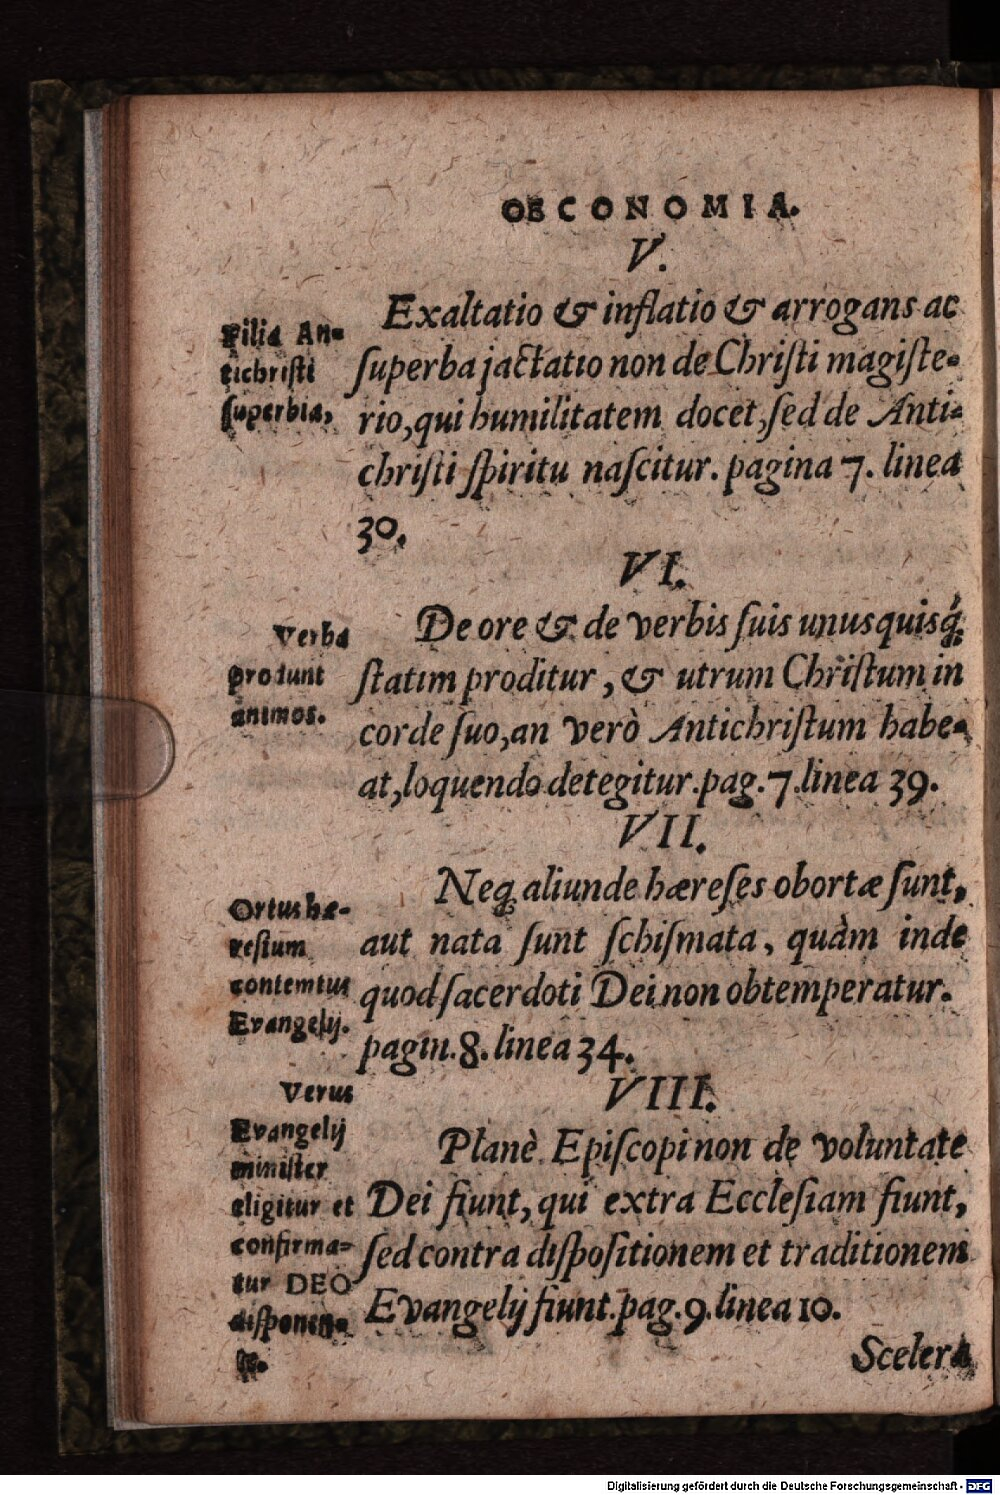 OECONOMIA.
V.
Filia An-
tichristi
superbia,
Exaltatio & inflatio & arrogans ac
ſuperba jactatio non de Chriſti magiſte-
rio, qui humilitatem docet, ſed de Anti-
chriſti ſpiritu naſcitur. pagina 7. linea
30.
VI.
Verba
produnt
animos.
De ore & de verbis ſuis unusquisq́;
ſtatim proditur, & utrum Chriſtum in
corde ſuo, an verò Antichriſtum habe-
at, loquendo detegitur. pag. 7. linea 39.
VII.
Ortus hæ-
reſium
contemtus
Evangelij.
Neq; aliunde hæreſes obortæ ſunt,
aut nata ſunt ſchiſmata, quàm inde
quod ſacerdoti Dei non obtemperatur.
pagin. 8. linea 34.
VIII.
Verus
Evangelij
miniſter
eligitur et
confirma-
tur DEO
diſponen-
te.
Planè Epiſcopi non de voluntate
Dei fiunt, qui extra Eccleſiam fiunt,
ſed contra diſpoſitionem et traditionem
Evangelij fiunt. pag. 9. linea 10.
Scelera
Digitalisierung gefördert durch die Deutsche Forschungsgemeinschaft - DFG